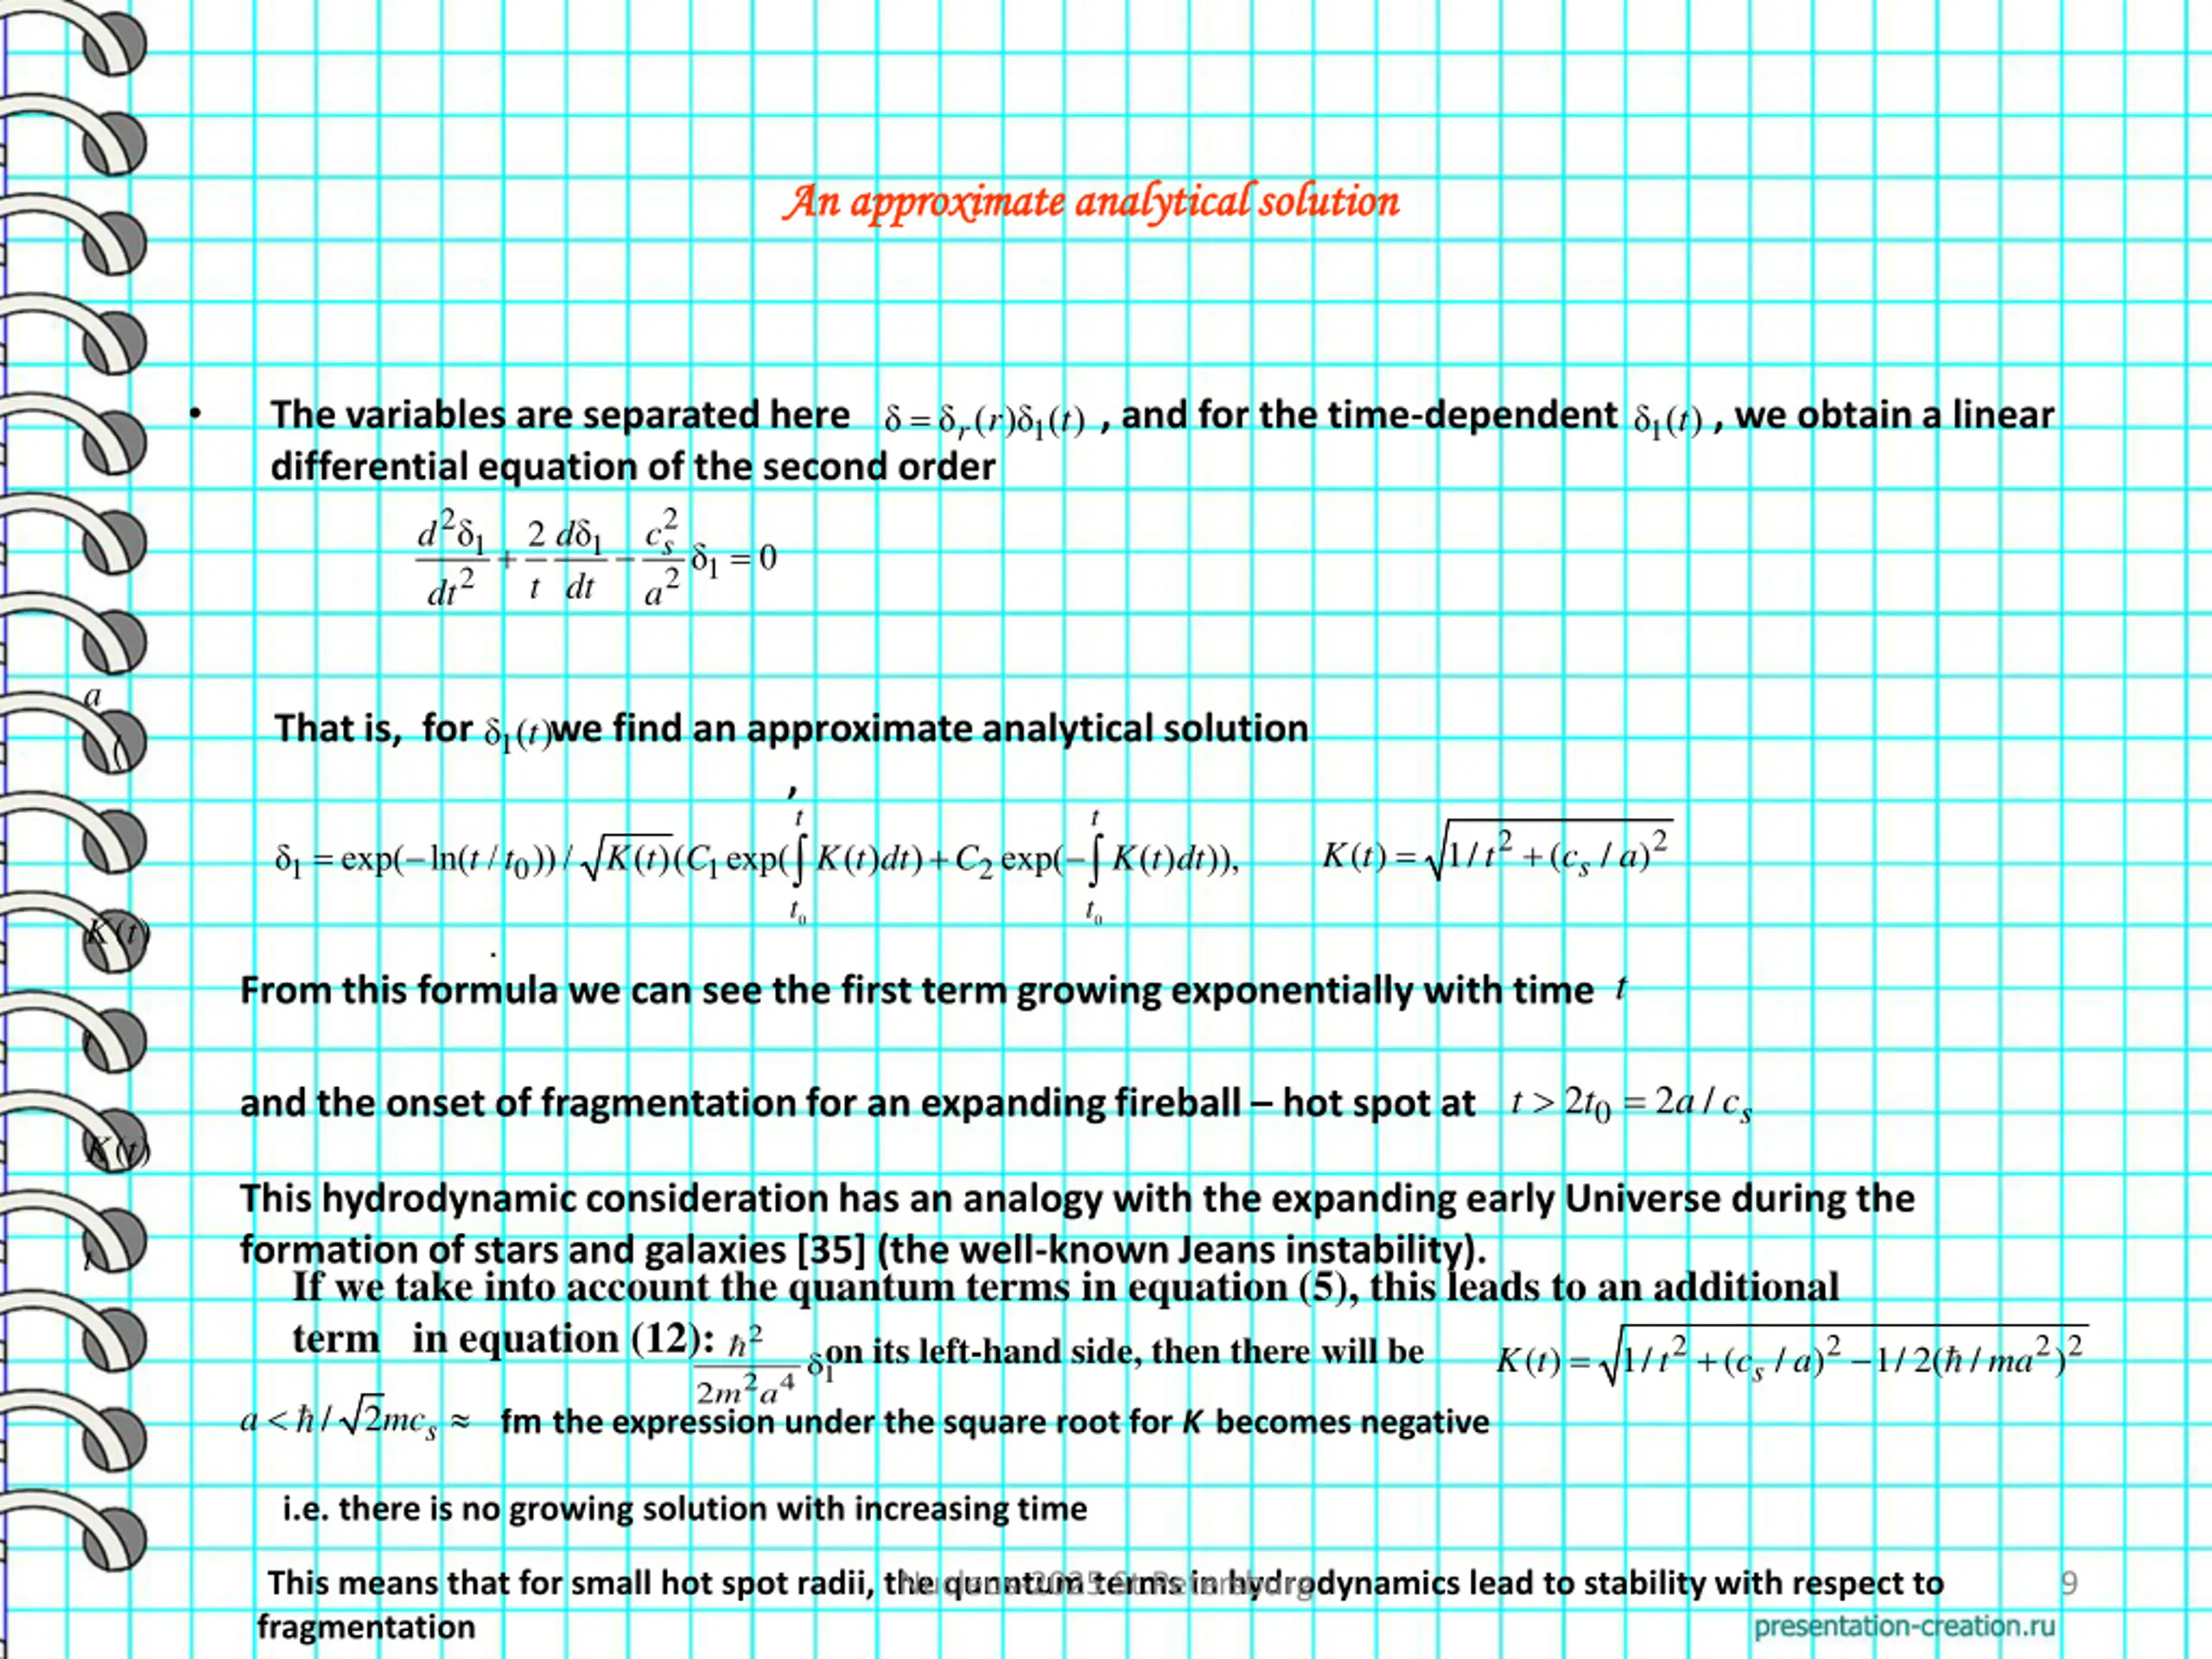 An approximate analytical solution
• The variables are separated here δ = δ_r(r)δ_1(t) , and for the time-dependent δ_1(t) , we obtain a linear
differential equation of the second order
d²δ_1/dt² + 2/t dδ_1/dt − c_s²/a² δ_1 = 0
a
(
That is, for δ_1(t) we find an approximate analytical solution
,
δ_1 = exp(−ln(t / t_0)) / √K(t) (C_1 exp(∫_{t_0}^{t} K(t)dt) + C_2 exp(−∫_{t_0}^{t} K(t)dt)), K(t) = √(1/t² + (c_s / a)²)
K(t)
.
From this formula we can see the first term growing exponentially with time t
and the onset of fragmentation for an expanding fireball – hot spot at t > 2t_0 = 2a / c_s
K(t)
This hydrodynamic consideration has an analogy with the expanding early Universe during the
formation of stars and galaxies [35] (the well-known Jeans instability).
t
If we take into account the quantum terms in equation (5), this leads to an additional
term in equation (12): ħ²/2m²a⁴ δ_1 on its left-hand side, then there will be K(t) = √(1/t² + (c_s / a)² − 1/2(ħ / ma²)²)
a < ħ / √2mc_s ≈ fm the expression under the square root for K becomes negative
i.e. there is no growing solution with increasing time
This means that for small hot spot radii, the quantum terms in hydrodynamics lead to stability with respect to
fragmentation
Nucleus-2025 St.Petersburg
9
presentation-creation.ru